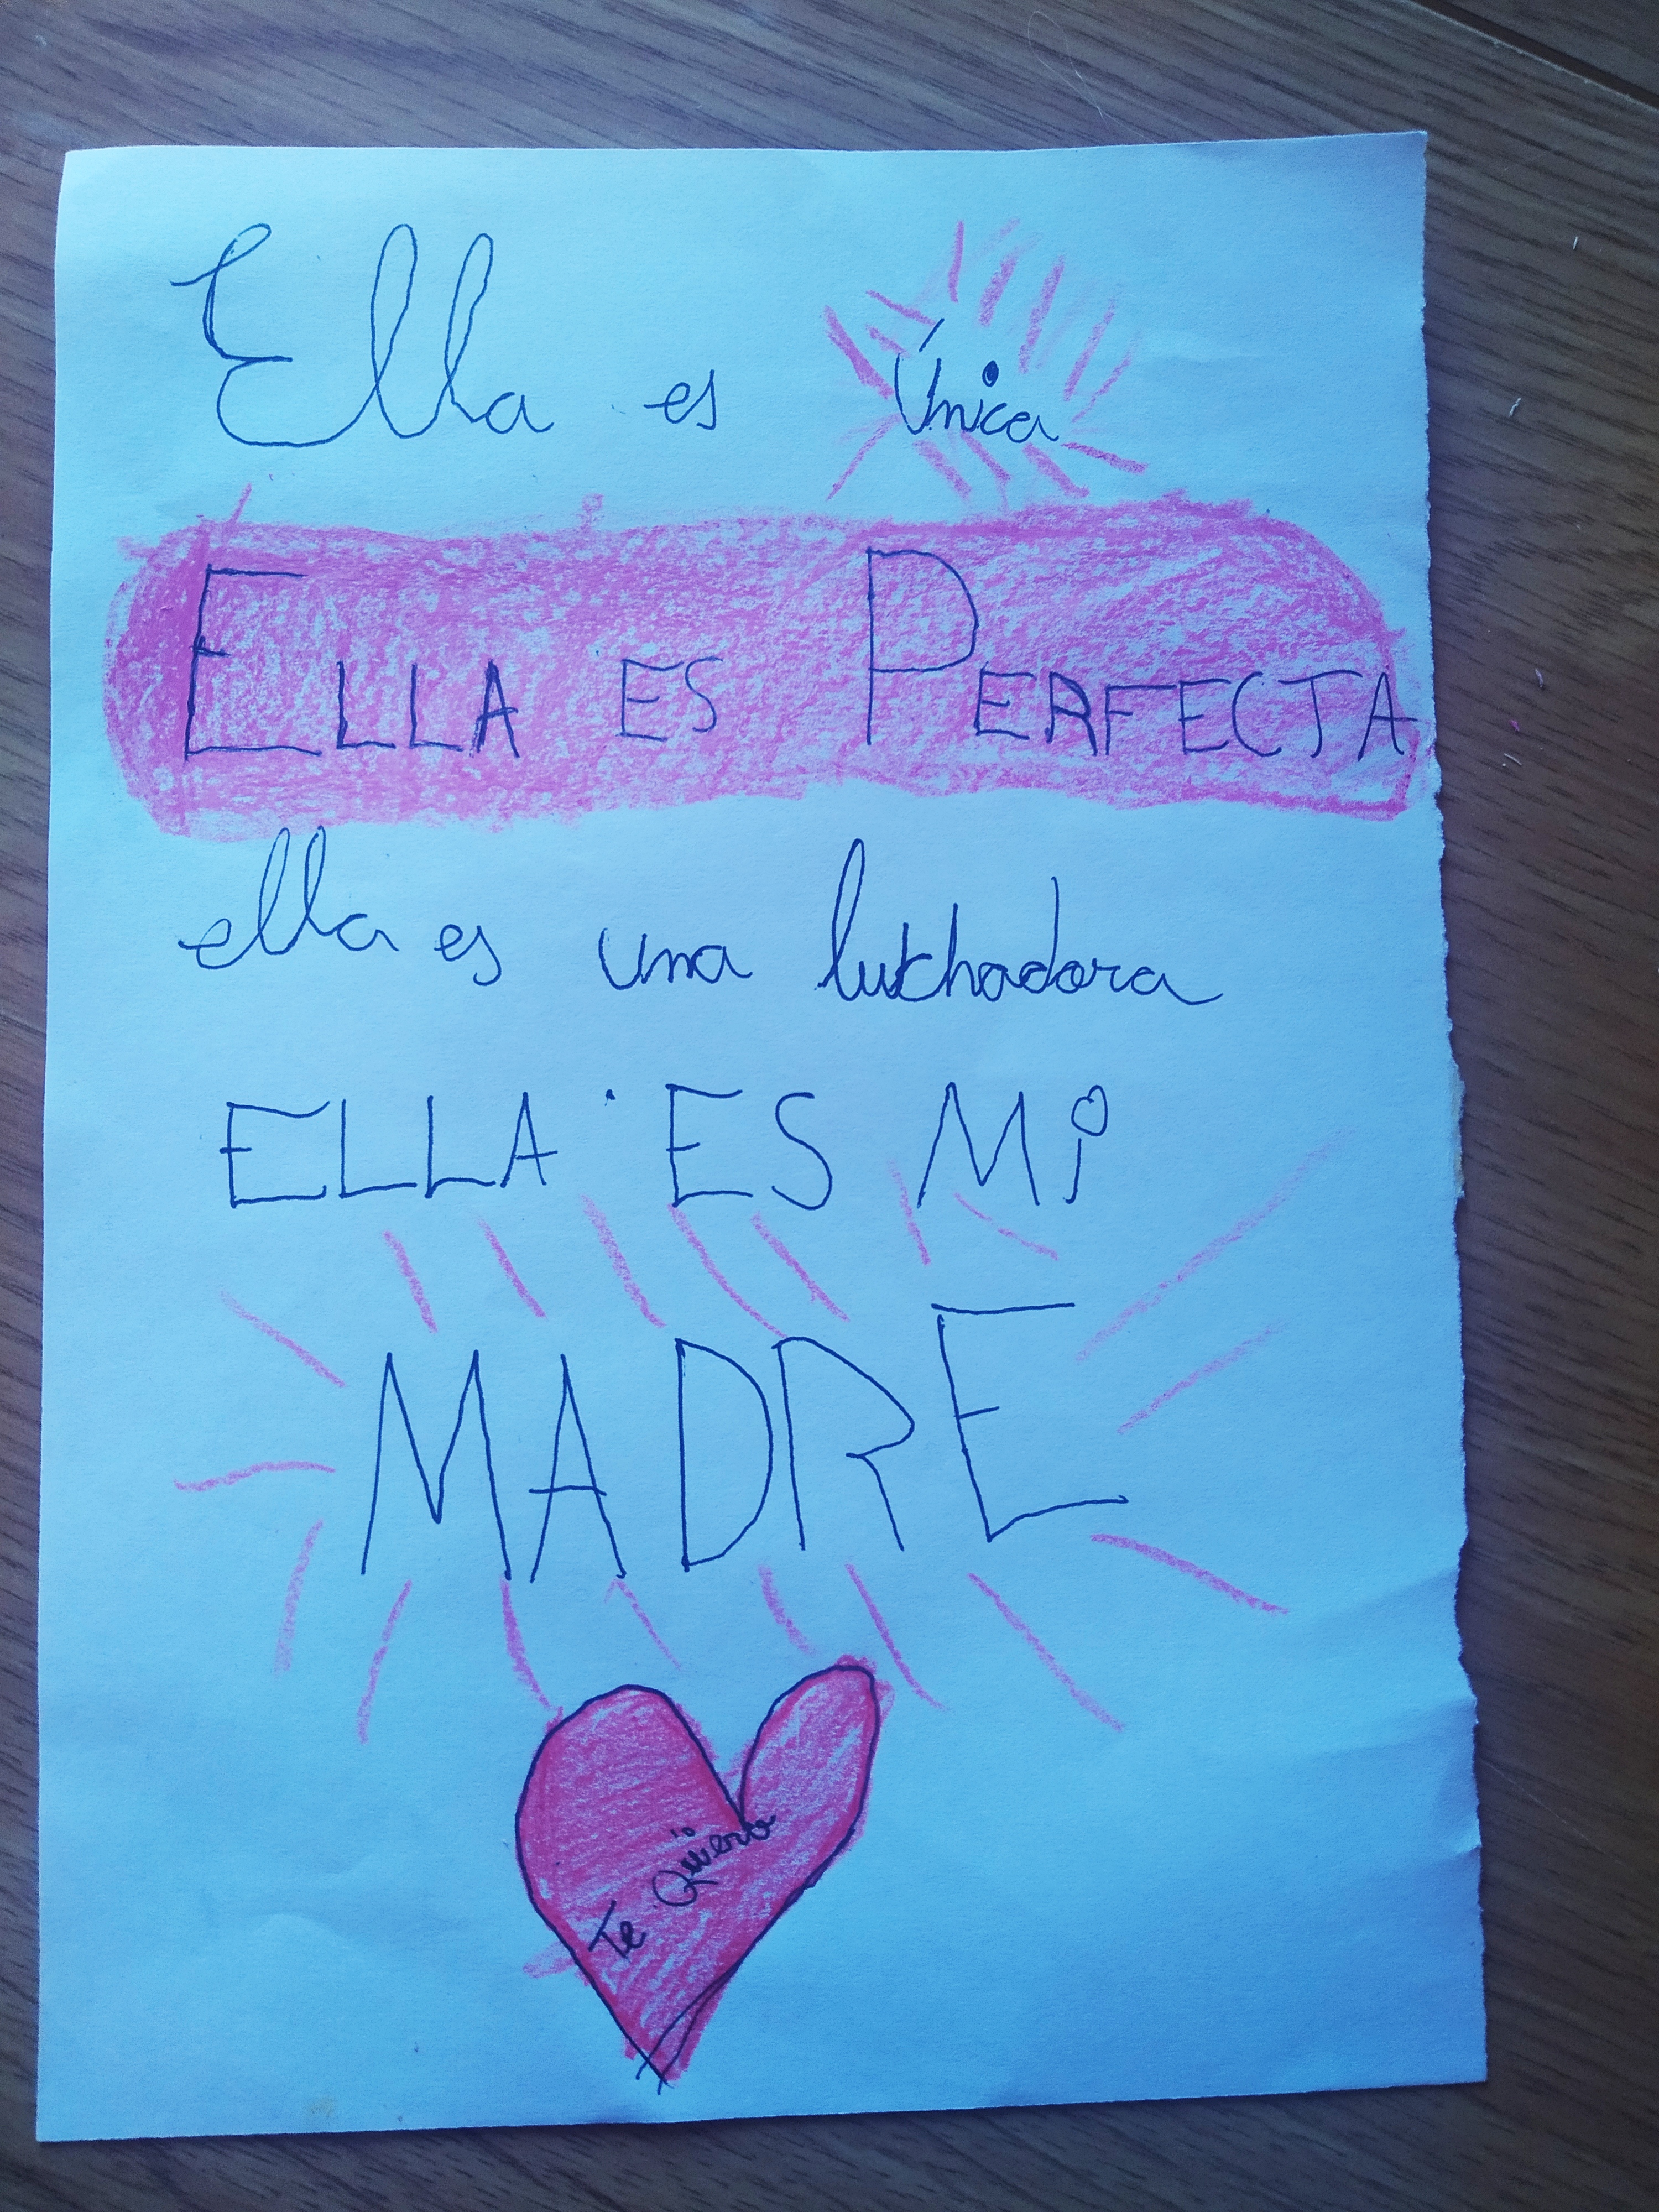 Ella es Única
ELLA ES PERFECTA
ella es una luchadora
ELLA ES Mi
MADRE
Te Quiero